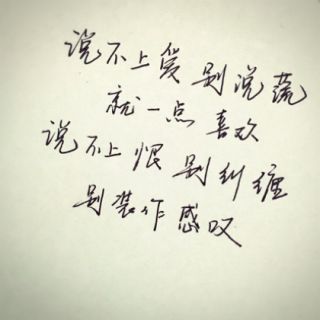 说不上爱别说谎
就一点喜欢
说不上恨别纠缠
别装作感叹